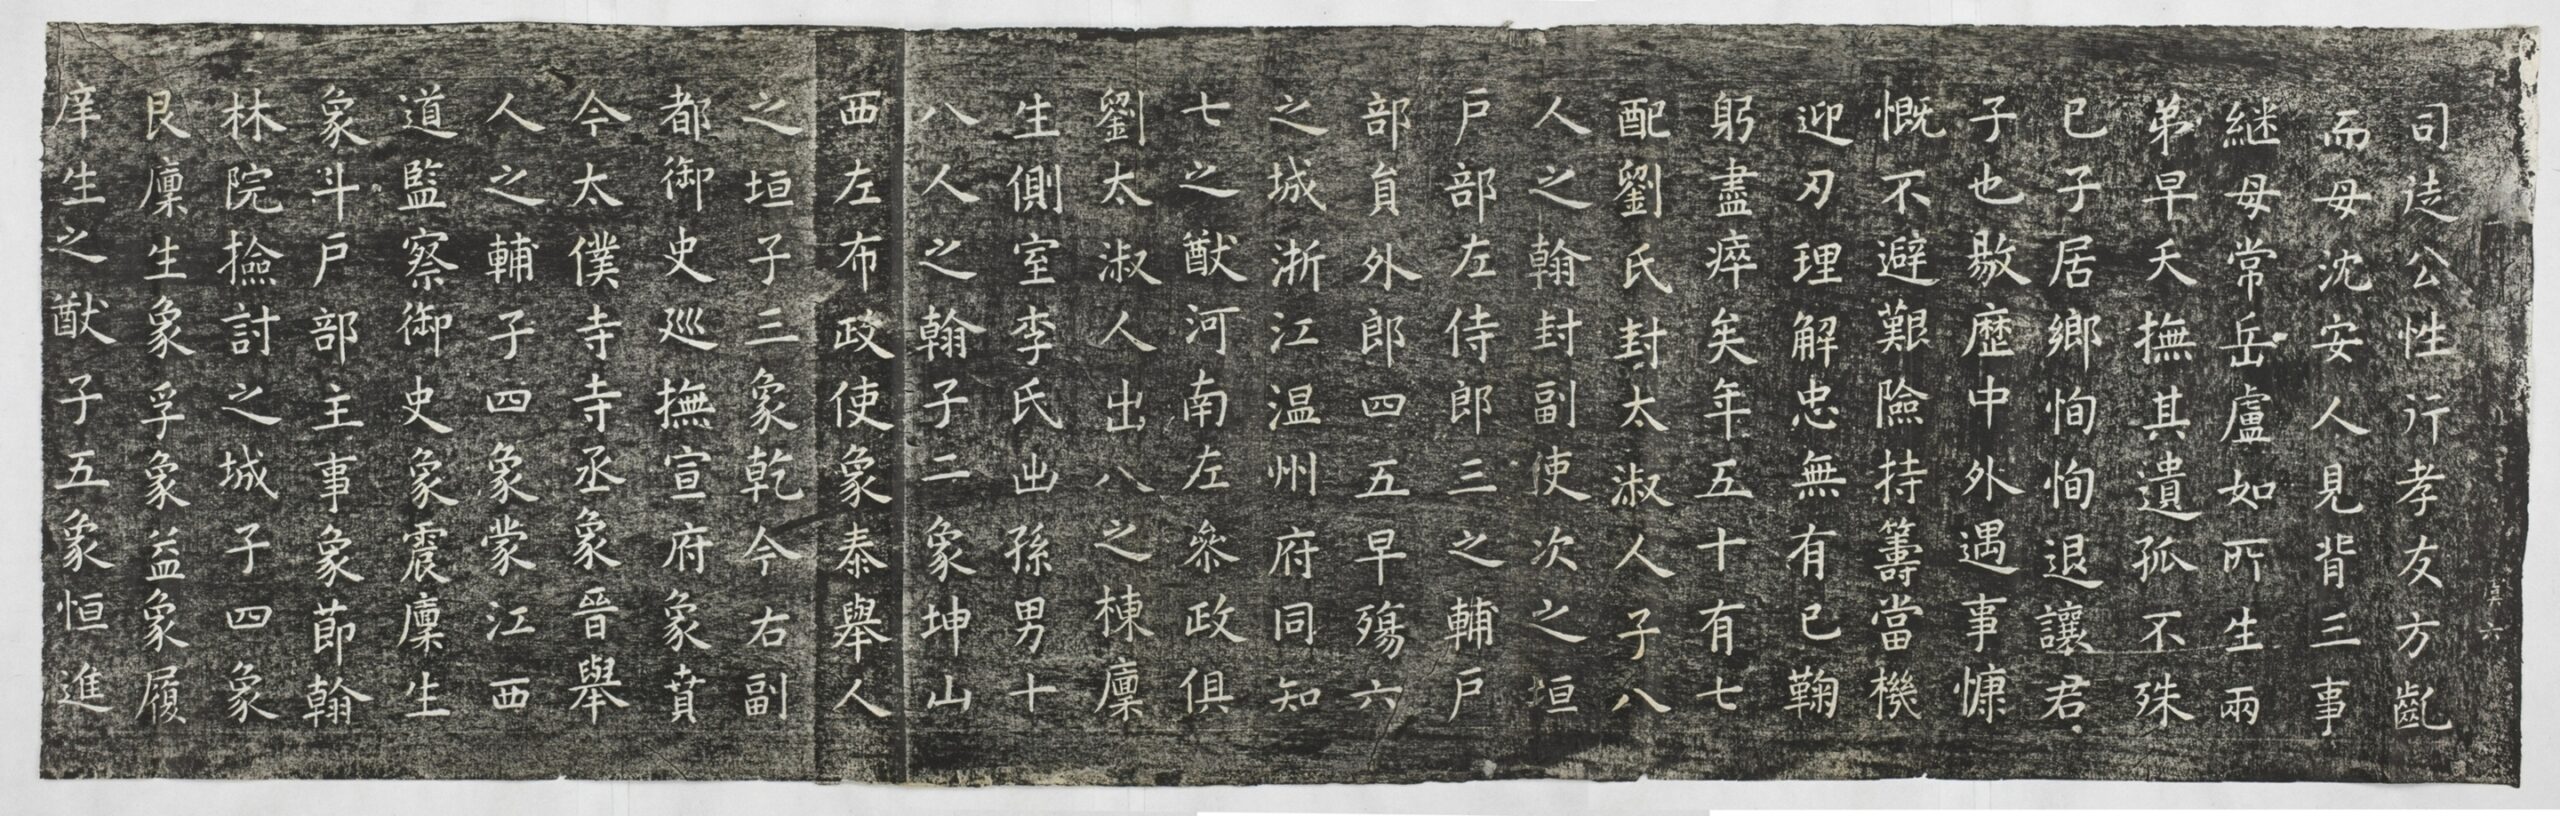 司徒公性行孝友方齔
而母沈安人見背三事
継母常岳盧如所生兩
弟早夭撫其遺孤不殊
已子居鄉恂恂退讓君
子也敭歷中外遇事慷
慨不避艱險持籌當機
迎刃理解忠無有已鞠
躬盡瘁矣年五十有七
配劉氏封太淑人子八
人之翰封副使次之垣
戶部左侍郎三之輔戶
部員外郎四五早殤六
之城浙江温州府同知
七之猷河南左叅政俱
劉太淑人出八之棟廩
生側室李氏出孫男十
八人之翰子二象坤山
西左布政使象泰舉人
之垣子三象乾今右副
都御史廵撫宣府象賁
今太僕寺寺丞象晉舉
人之輔子四象蒙江西
道監察御史象震廩生
象斗戶部主事象節翰
林院撿討之城子四象
艮廩生象孚象益象履
庠生之猷子五象恒進
六